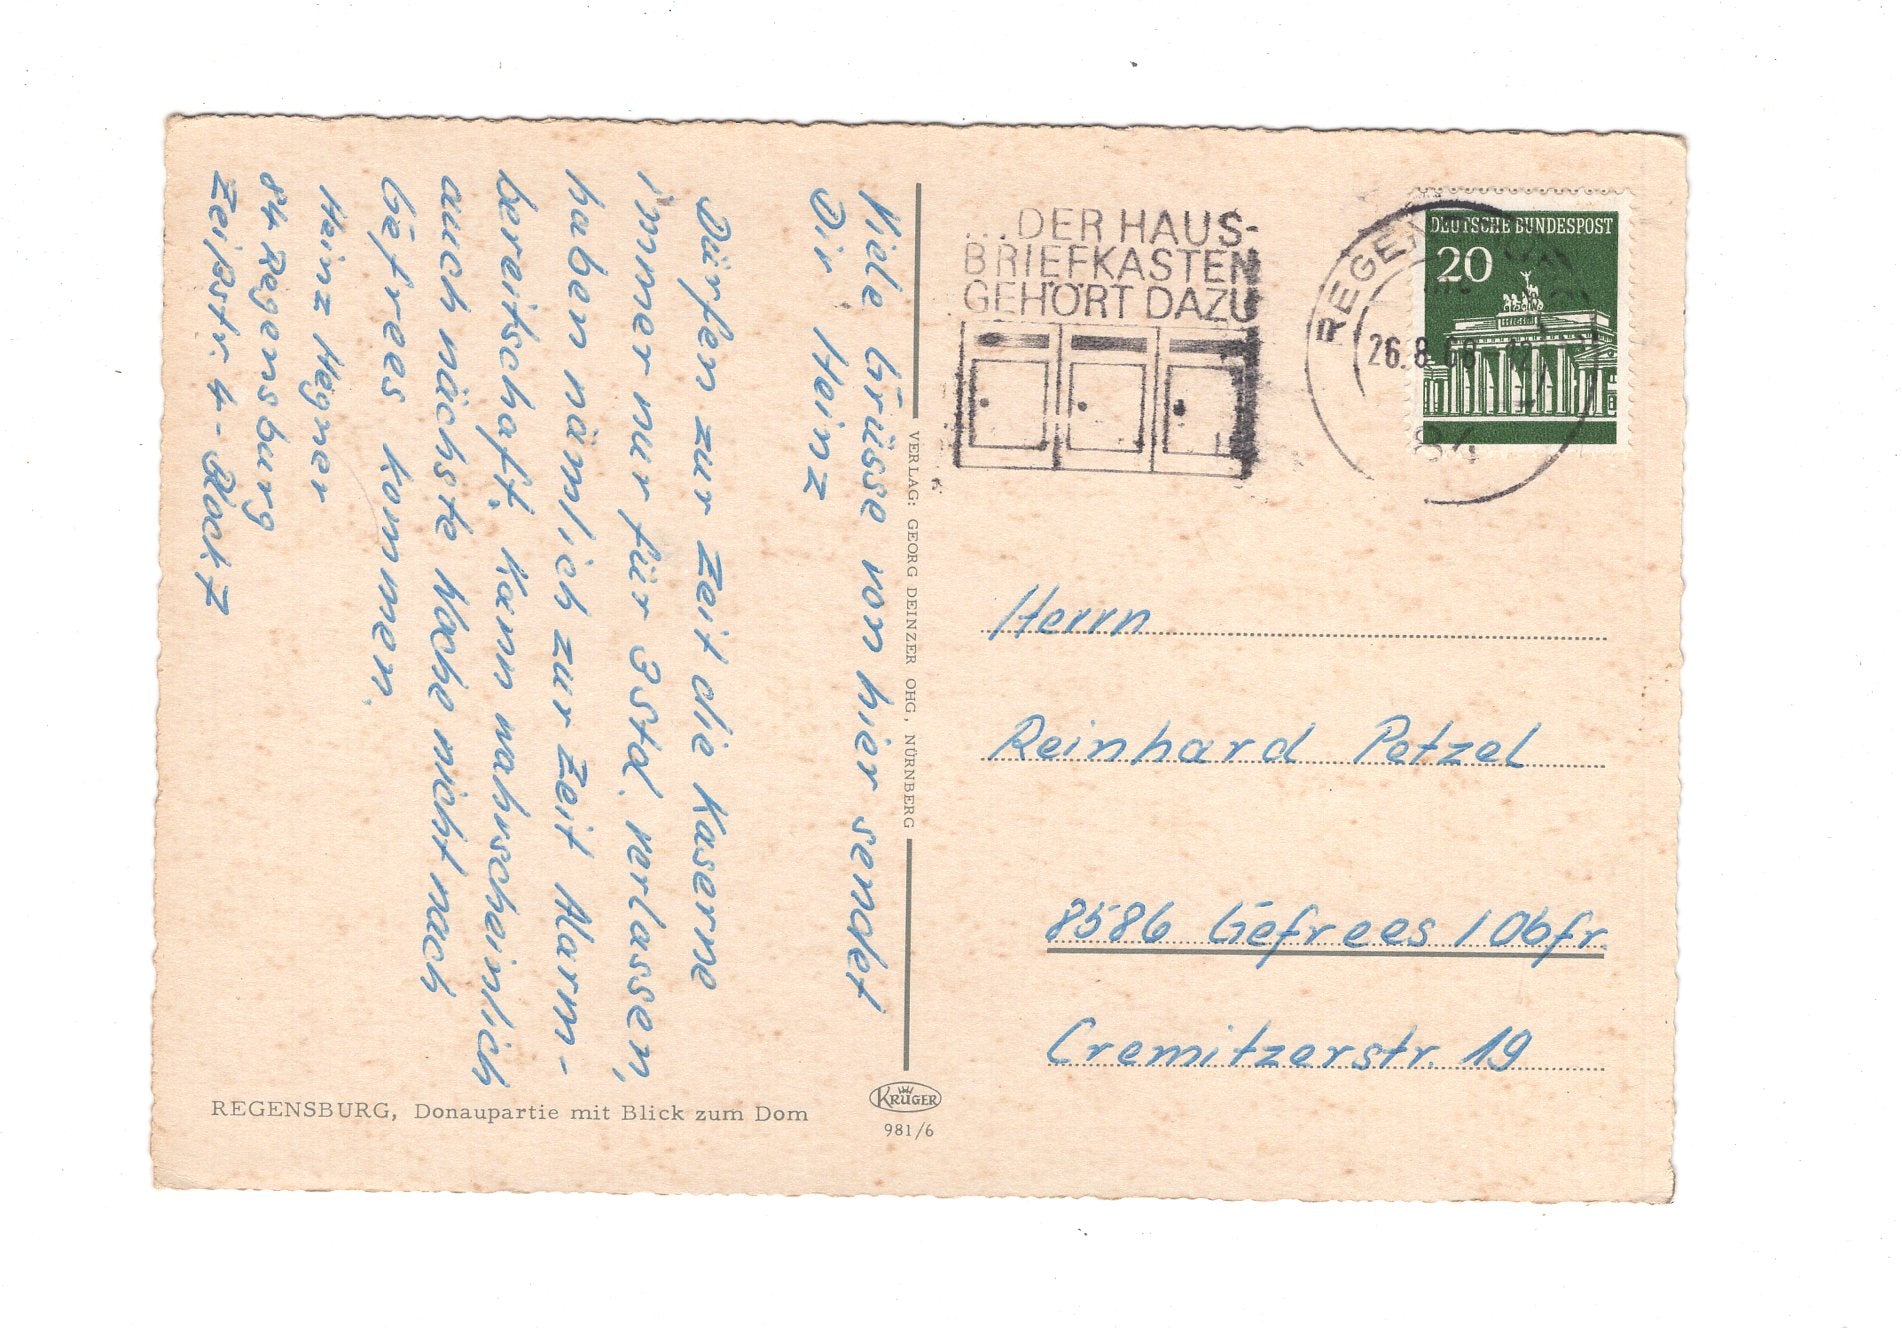 Viele Grüsse von hier sendet
Dir Heinz
Dürfen zur Zeit die Kaserne
immer nur für 3 Std. verlassen,
haben nämlich zur Zeit Alarm-
bereitschaft. Kann wahrscheinlich
auch nächste Woche nicht nach
Gefrees kommen.
Heinz Hegner
84 Regensburg
Zeißstr. 4 - Block 7
REGENSBURG, Donaupartie mit Blick zum Dom
VERLAG: GEORG DEINZER OHG, NÜRNBERG
KRÜGER
981/6
...DER HAUS-
BRIEFKASTEN
GEHÖRT DAZU
26.8.68
84
DEUTSCHE BUNDESPOST
20
Herrn
Reinhard Petzel
8586 Gefrees / Obfr.
Cremitzerstr. 19